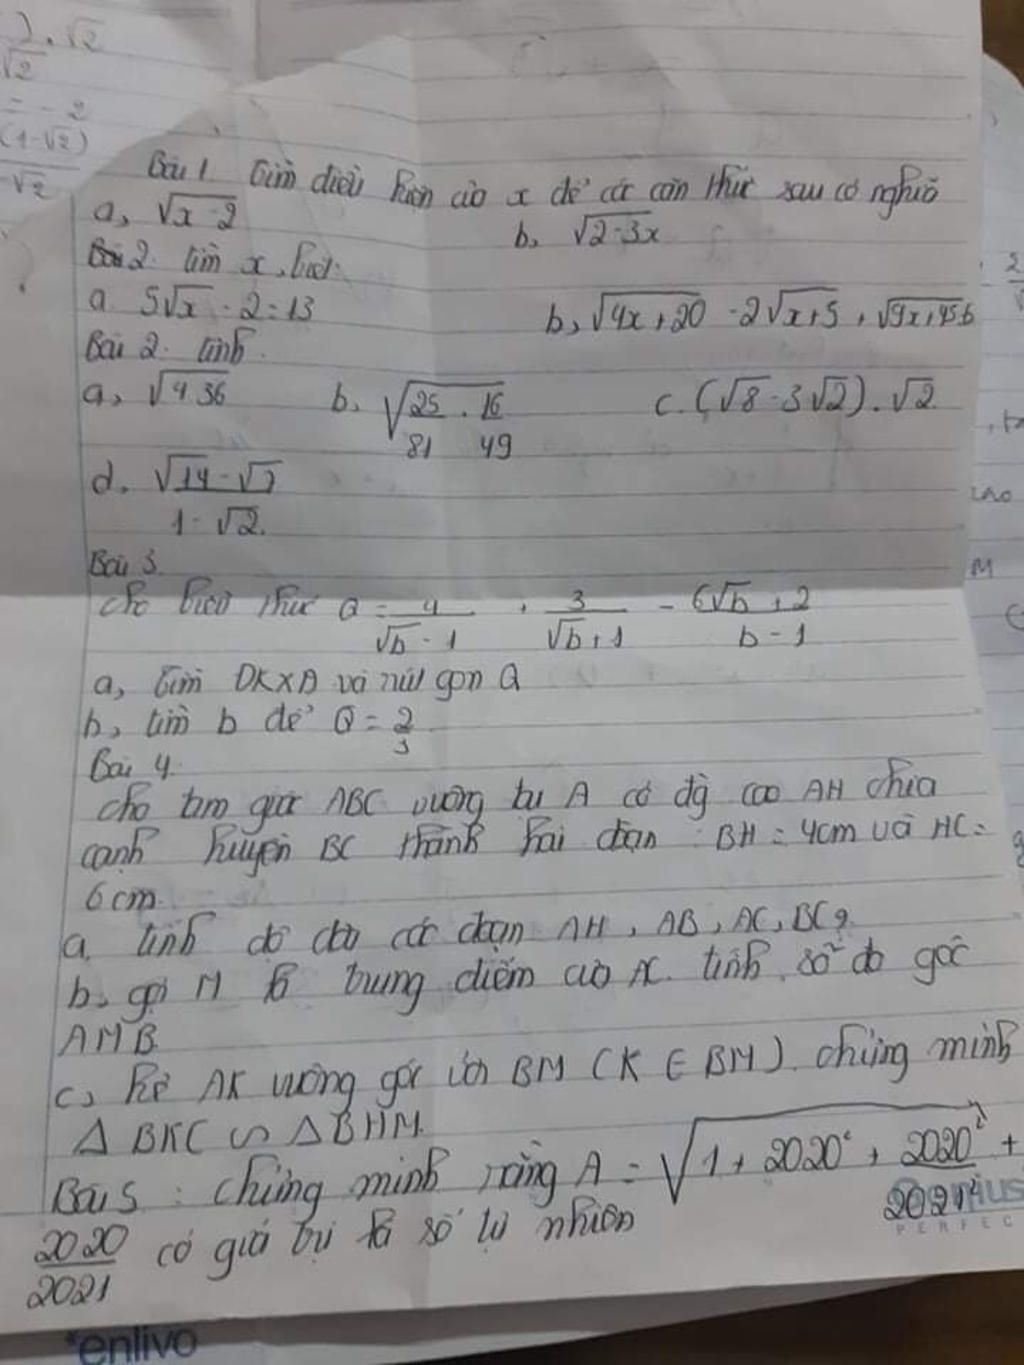 ) . √2
√2
= - 2
(1-√2)
-√2
Bài 1. Tìm điều kiện của x để các căn thức sau có nghĩa
a, √x-2
b, √2-3x
Bài 2. tìm x, biết:
a. 5√x - 2 = 13
b, √4x+20 - 2√x+5 + √9x+45 = 6
Bài 2. tính
a, √4.36
b, √25/81 . 16/49
c. (√8 - 3√2) . √2
d. √14 - √7 / 1 - √2.
Bài 3.
cho biểu thức Q = 4/√b - 1 + 3/√b + 1 - 6√b + 2/b - 1
a, Tìm ĐKXĐ và rút gọn Q
b, tìm b để Q = 2/3
Bài 4.
cho tam giác ABC vuông tại A có đg cao AH chia
cạnh huyền BC thành hai đoạn : BH = 4cm và HC =
6cm.
a. tính độ dài các đoạn AH, AB, AC, BC?
b, gọi M là trung điểm của AC. tính số đo góc
AMB.
c, kẻ AK vuông góc với BM (K ∈ BM). chứng minh
Δ BKC ∽ Δ BHM.
Bài 5 : chứng minh rằng A = √1 + 2020² + 2020²/2021² +
2020/2021 có giá trị là số tự nhiên
PERFEC
enlivo